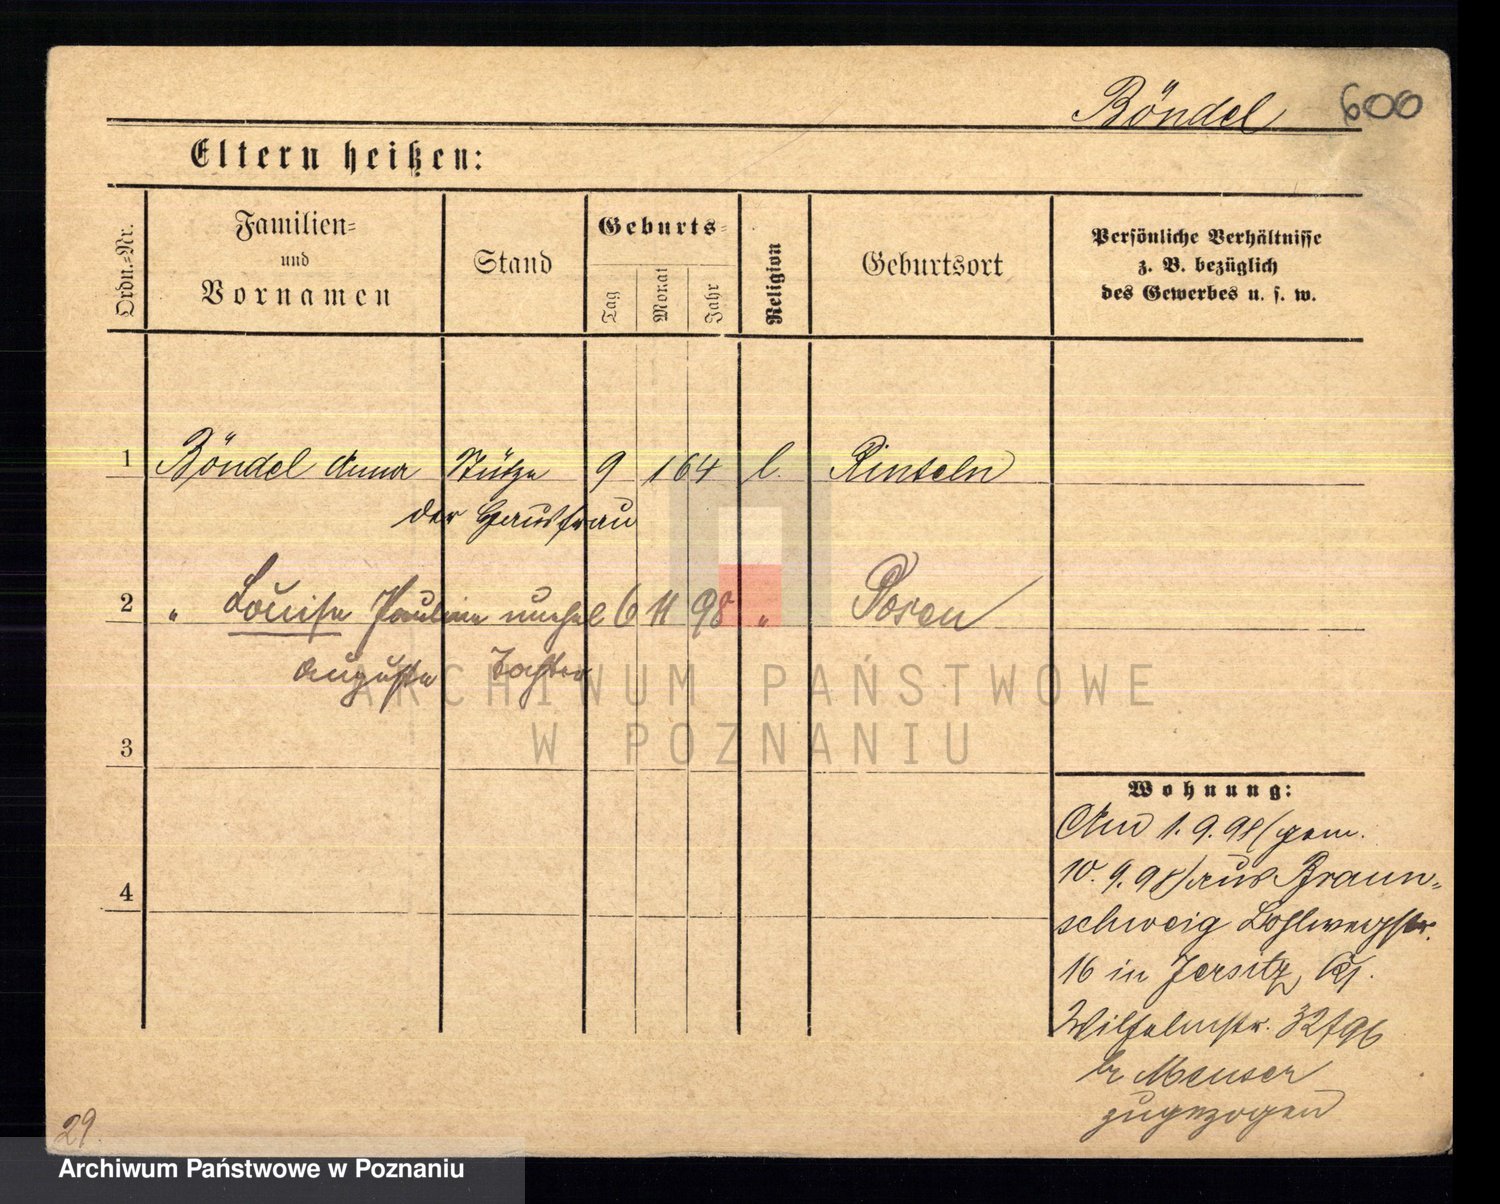 Böndel 600
Eltern heißen:
Ordn.-Nr.
Familien-
und
Vornamen
Stand
Geburts-
Tag
Monat
Jahr
Religion
Geburtsort
Persönliche Verhältnisse
z. B. bezüglich
des Gewerbes u. s. w.
1 Böndel Anna Stütze 9 1 64 l. Rinteln
der Hausfrau
2 " Louise Pauline unehel 6 11 98 " Posen
Auguste Tochter
3
4
Wohnung:
Am 1.9.98/gem.
10.9.98/aus Braun-
schweig
16 in Jersitz,
Wilhelmstr. 32/96
br Meuser
zugezogen
29.
ARCHIWUM PAŃSTWOWE
W POZNANIU
Archiwum Państwowe w Poznaniu